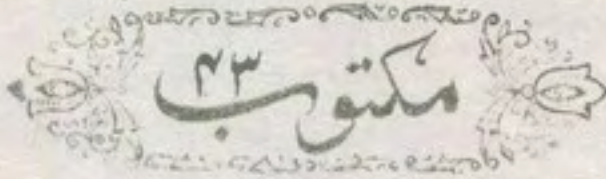 مکتوب ۴۳